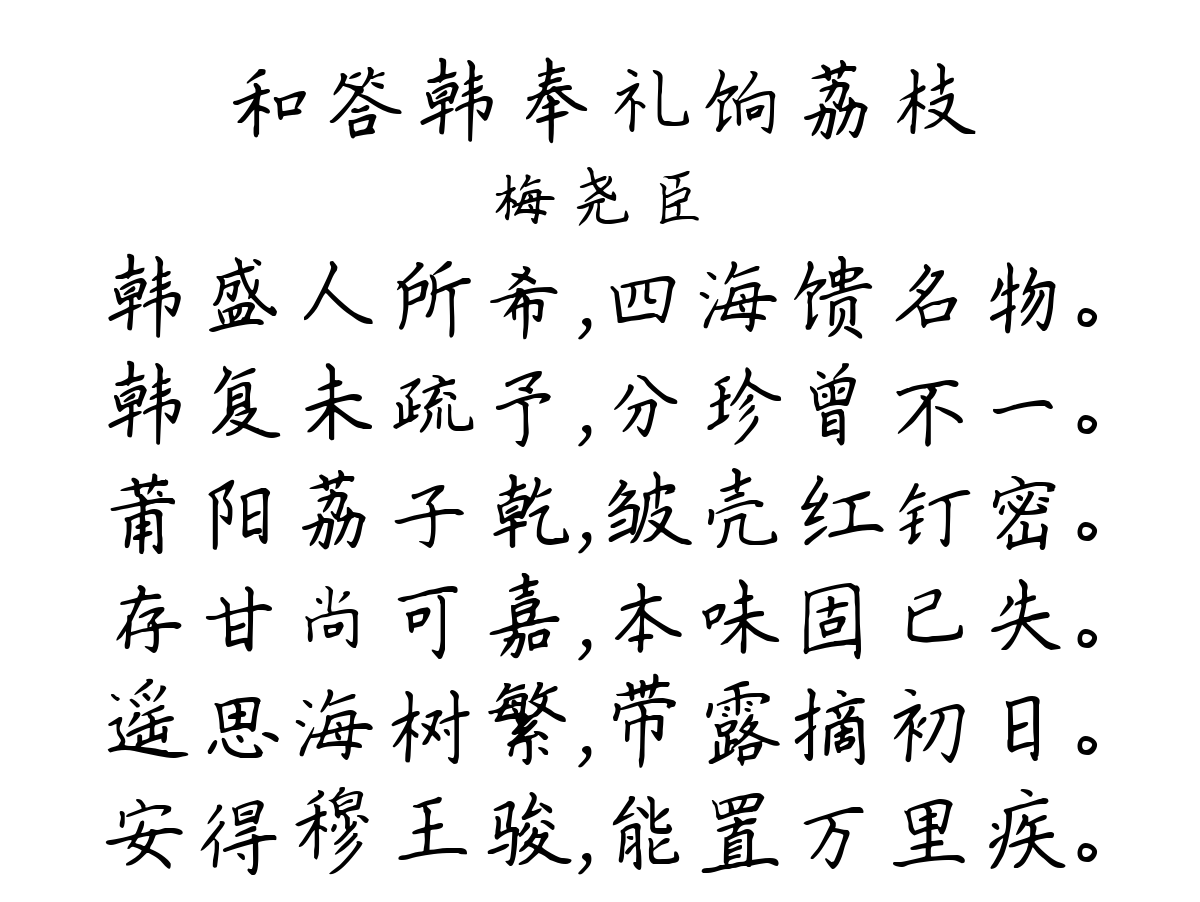 和答韩奉礼饷荔枝
梅尧臣
韩盛人所希,四海馈名物。
韩复未疏予,分珍曾不一。
莆阳荔子乾,皱壳红钉密。
存甘尚可嘉,本味固已失。
遥思海树繁,带露摘初日。
安得穆王骏,能置万里疾。